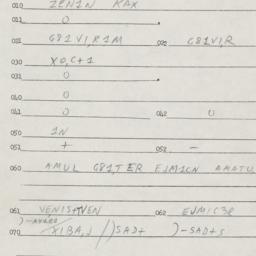 010 ZEN1N KAX
011 0
021 G81V1,R1M 022 G81V1,R
030 X0,C+1
031 0
040 0
041 0 042 0
050 1N
051 + 052 -
060 AMUL G81,TER EJM1CN AMATU
061 VENIS+VEN 062 EJMIC3R
070 X1BA,J //)SAD+ )-SAD+S